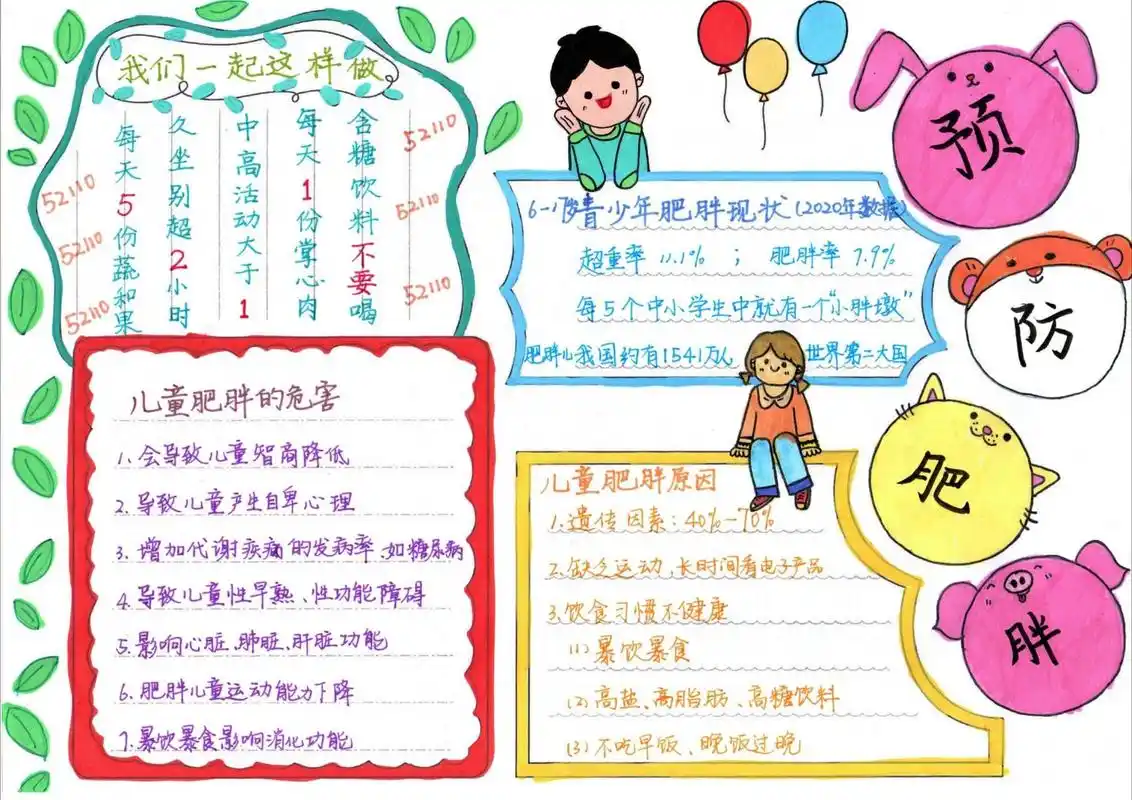 我们一起这样做
每天5份蔬和果
久坐别超2小时
中高活动大于1
每天1份掌心肉
含糖饮料不要喝
52110
52110
52110
52110
52110
52110
预
防
肥
胖
6-17岁青少年肥胖现状(2020年数据)
超重率 11.1% ; 肥胖率 7.9%
每5个中小学生中就有一个“小胖墩”
肥胖儿我国约有1541万人 世界第二大国
儿童肥胖的危害
1.会导致儿童智商降低
2.导致儿童产生自卑心理
3.增加代谢疾病的发病率.如糖尿病
4.导致儿童性早熟、性功能障碍
5.影响心脏、肺脏、肝脏功能
6.肥胖儿童运动能力下降
7.暴饮暴食影响消化功能
儿童肥胖原因
1.遗传因素:40%-70%
2.缺乏运动,长时间看电子产品
3.饮食习惯不健康
(1)暴饮暴食
(2)高盐、高脂肪、高糖饮料
(3)不吃早饭、晚饭过晚